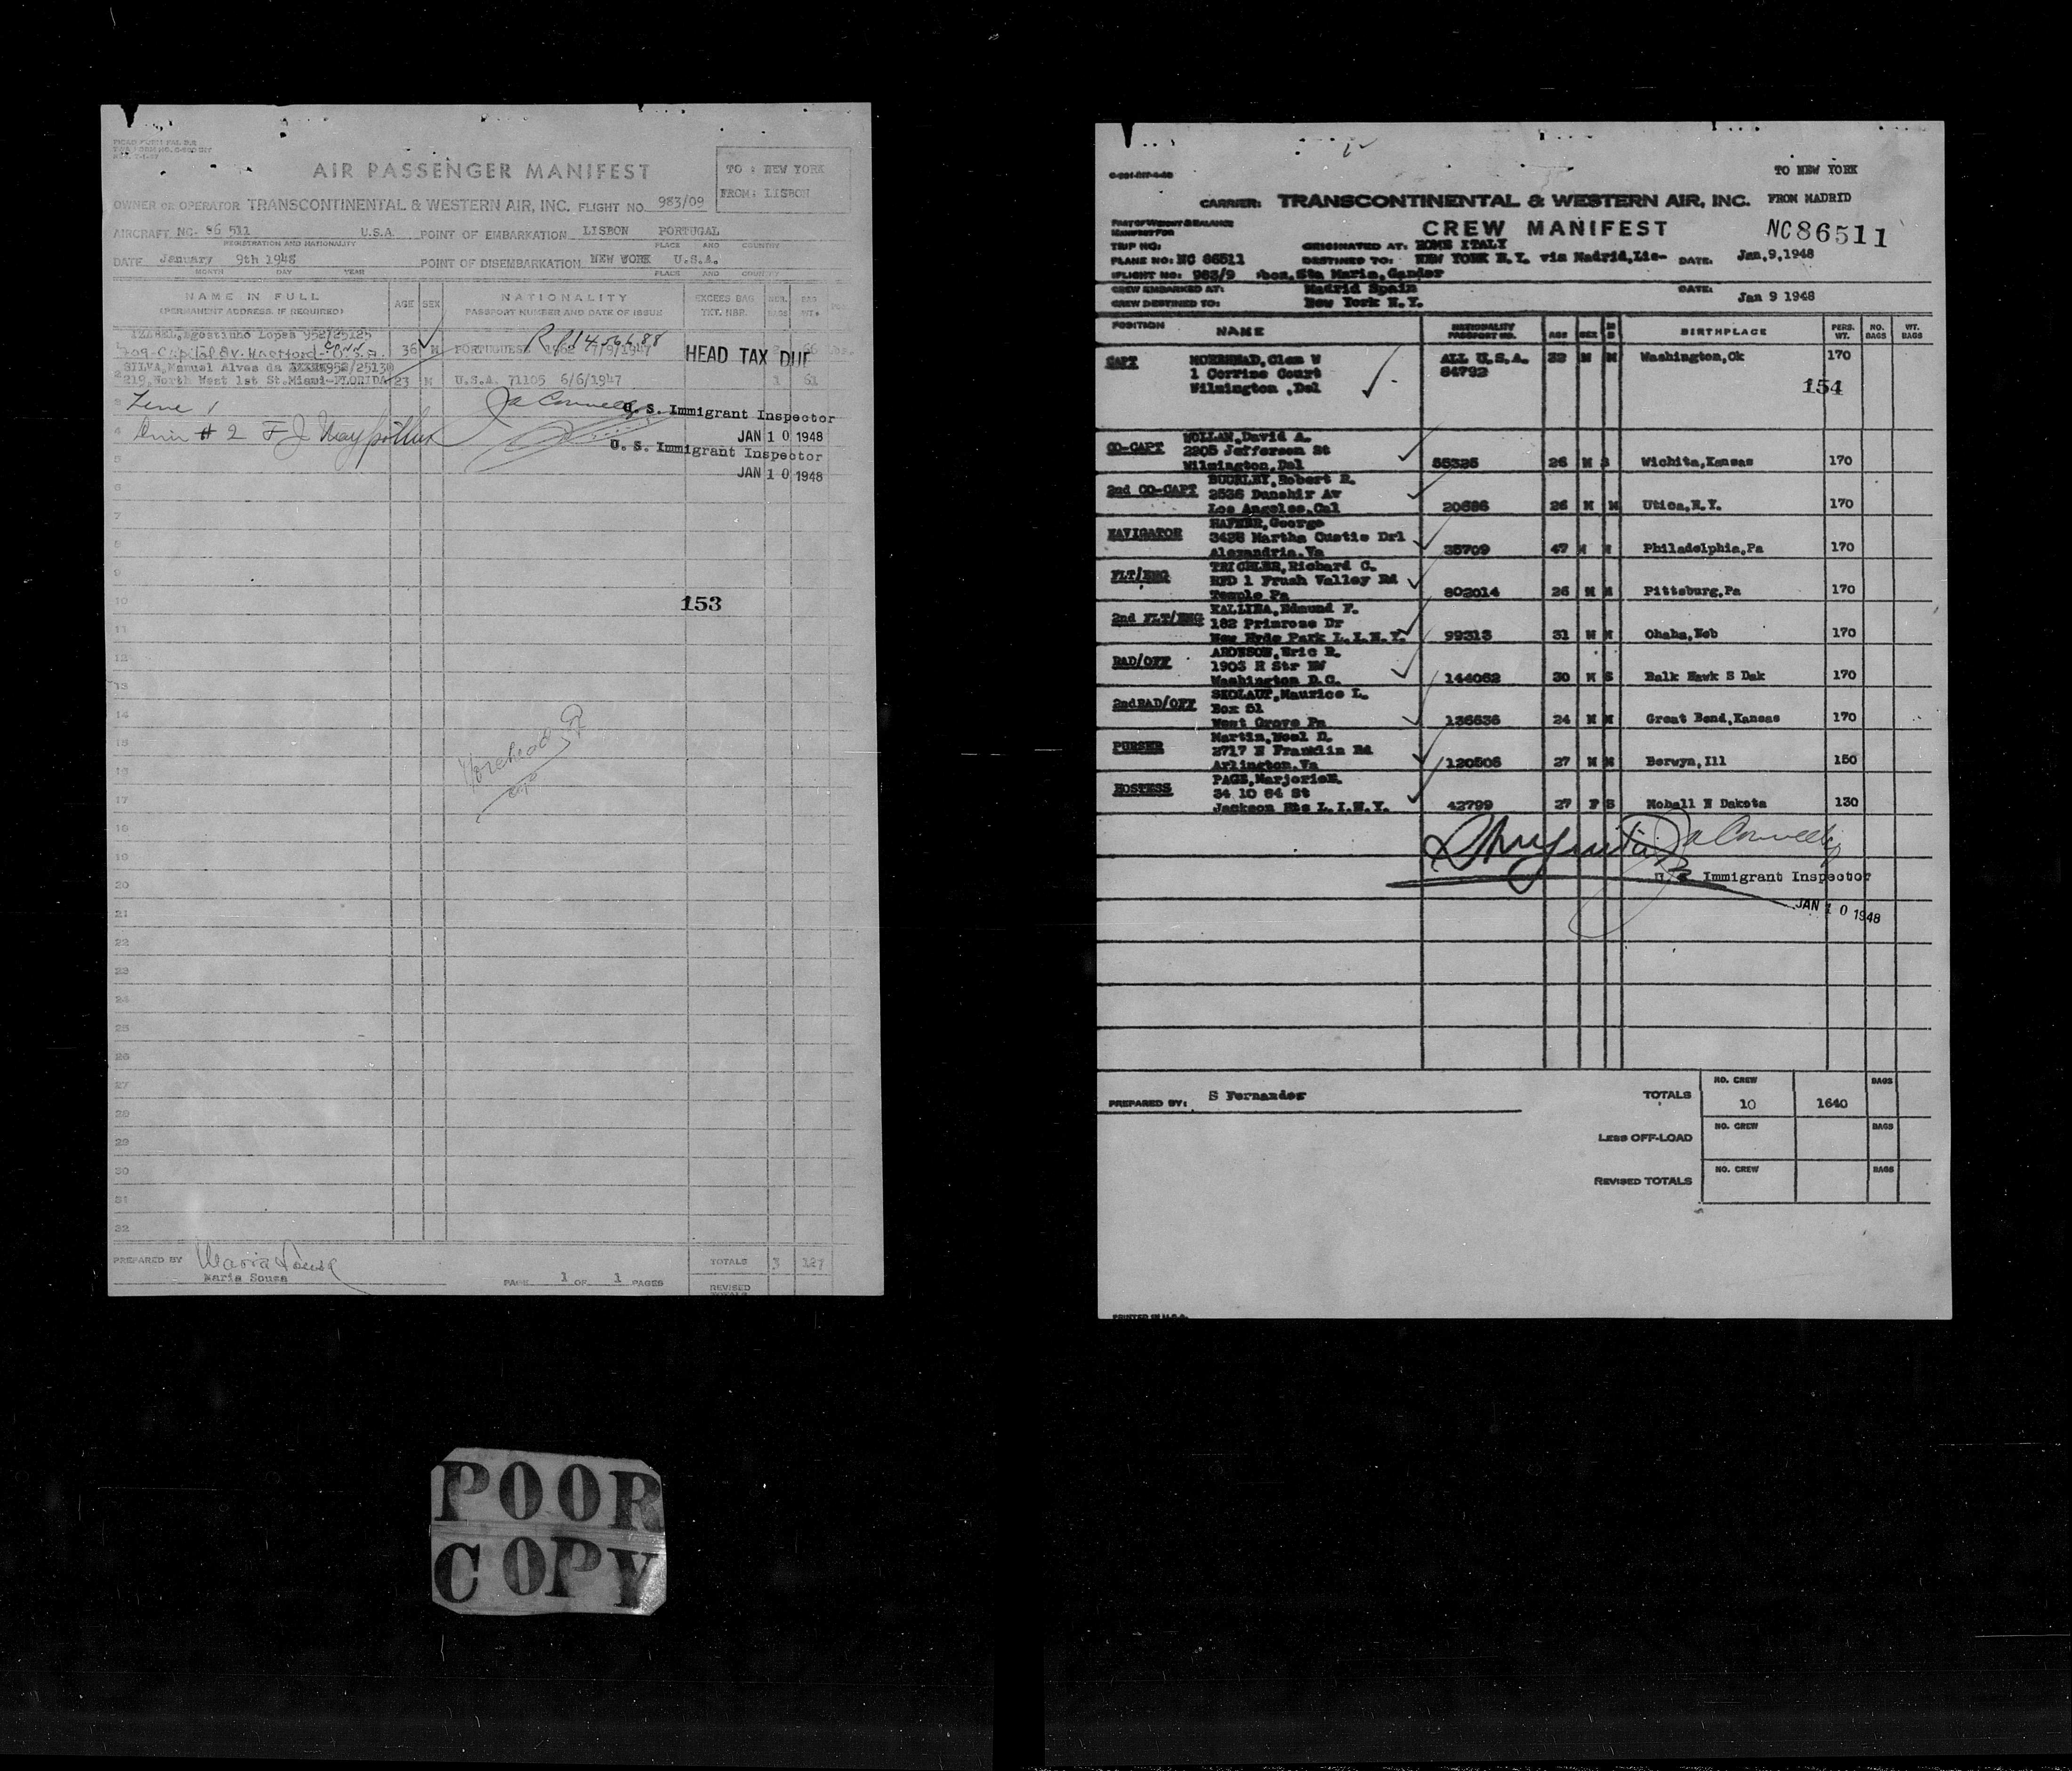 AIR PASSENGER MANIFEST
TO : NEW YORK
FROM: LISBON
OWNER OR OPERATOR TRANSCONTINENTAL & WESTERN AIR, INC. FLIGHT NO. 983/09
AIRCRAFT NC. 86 511 U.S.A. POINT OF EMBARKATION LISBON PORTUGAL
REGISTRATION AND NATIONALITY PLACE AND COUNTRY
DATE January 9th 1948 POINT OF DISEMBARKATION NEW YORK U.S.A.
MONTH DAY YEAR PLACE AND COUNTRY
NAME IN FULL AGE SEX NATIONALITY EXCEES BAG
(PERMANENT ADDRESS, IF REQUIRED) PASSPORT NUMBER AND DATE OF ISSUE TKT. NBR.
Agostinho Lopes 952/25125
709-Capitol Av. Hartford- Conn U.S.A. 36 M PORTUGUESE 7/9/1947 66 Lbs.
HEAD TAX DUE
SILVA, Manuel Alves da 952/25130
2 219, North West 1st St. Miami-FLORIDA 23 M U.S.A. 71105 6/6/1947 1 61
3 Line 1 Ja Connelly U. S. Immigrant Inspector
JAN 10 1948
4 # 2 F J
U. S. Immigrant Inspector
5 JAN 10 1948
6
7
8
9
10 153
11
12
13
14
15 Morehead
16
17
18
19
20
21
22
23
24
25
26
27
28
29
30
31
32
PREPARED BY Maria Sousa TOTALS 3 127
Maria Sousa
PAGE 1 OF 1 PAGES REVISED TOTALS
POOR
COPY
TO NEW YORK
CARRIER: TRANSCONTINENTAL & WESTERN AIR, INC. FROM MADRID
PART OF WEIGHT & BALANCE
MANIFEST FOR
CREW MANIFEST NC86511
TRIP NO: ORIGINATED AT: ROME ITALY
PLANE NO: NC 86511 DESTINED TO: NEW YORK N.Y. via Madrid, Lis- DATE: Jan, 9, 1948
FLIGHT NO: 983/9 bon, Sta Maria, Gander
CREW EMBARKED AT: Madrid Spain DATE: Jan 9 1948
CREW DESTINED TO: New York N.Y.
POSITION NAME NATIONALITY PASSPORT NO. AGE SEX M S BIRTHPLACE PERS. WT. NO. BAGS WT. BAGS
CAPT MOREHEAD, Clem W ALL U.S.A. 32 M M Washington, Ok 170
1 Corrine Court 84792
Wilmington, Del
154
CO-CAPT David A.
2205 Jefferson St
Wilmington, Del 55325 26 M S Wichita, Kansas 170
2nd CO-CAPT BUCKLEY, Robert R.
2536 Av
Los Angeles, Cal 20686 26 M M Utica, N.Y. 170
NAVIGATOR HAFNER, George
3428 Martha Custis Drl
Alexandria, Va 35709 47 M M Philadelphia, Pa 170
FLT/ENG TRICHLER, Richard C.
RFD 1 Frush Valley Rd
Temple Pa 802014 26 M M Pittsburg, Pa 170
2nd FLT/ENG KALLINA, Edmund F.
182 Primrose Dr
New Hyde Park L.I.N.Y. 99313 31 M M Ohaha, Neb 170
RAD/OFF ARONSON, Eric R.
1903 R Str NW
Washington D.C. 144062 30 M S Balk Hawk S Dak 170
2nd RAD/OFF SKOLAUT, Maurice L.
Box 51
West Grove Pa 136636 24 M M Great Bend, Kansas 170
PURSER Martin, Noel D.
2717 N Franklin Rd
Arlington, Va 120506 27 M M Berwyn, Ill 150
HOSTESS PAGE, MarjorieE.
34 10 84 St
Jackson Hts L.I.N.Y. 42799 27 F S Mohall N Dakota 130
Ja Connelly
U. S. Immigrant Inspector
JAN 10 1948
PREPARED BY: S Fernandez
TOTALS NO. CREW 10 1640 BAGS
LESS OFF-LOAD NO. CREW BAGS
REVISED TOTALS NO. CREW BAGS
PRINTED IN U.S.A.